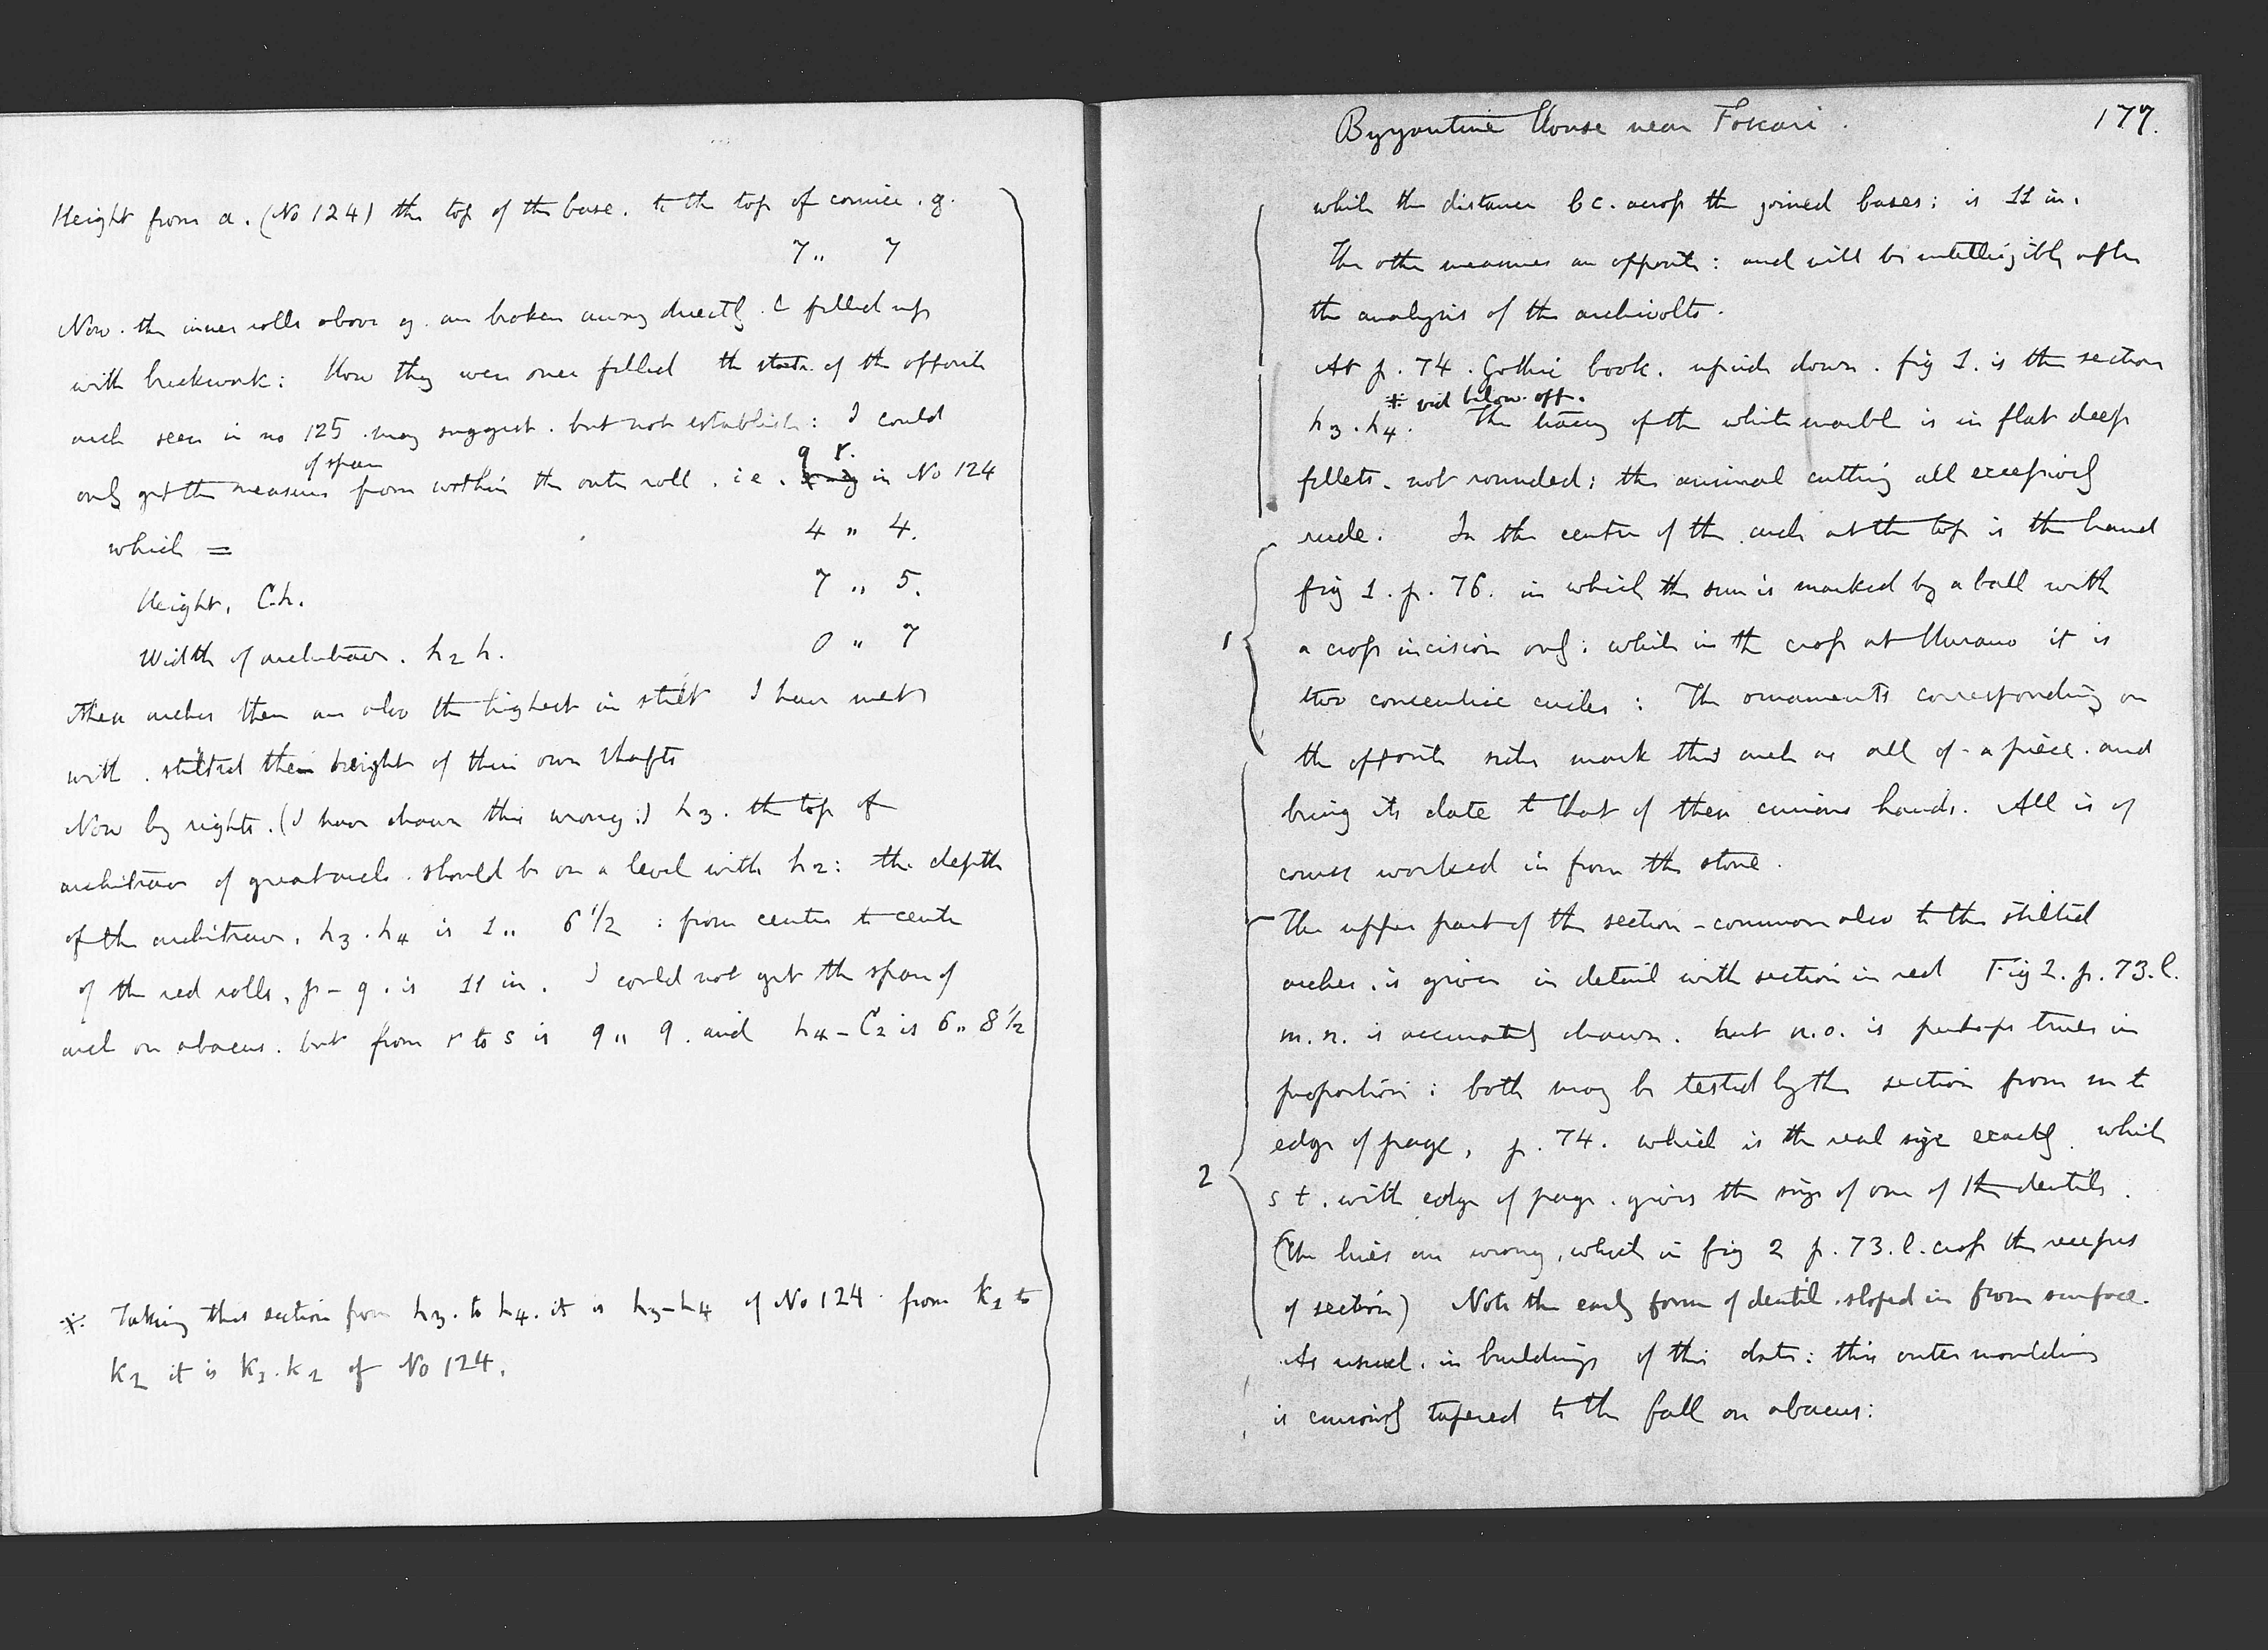 Height from a. (No 124) the top of the base. to the top of cornice. g.
7 " 7
Now. the inner rolls above g. are broken away directly. & filled up
with brickwork: How they were once filled the state of the opposite
arch seen in no 125. may suggest. but not establish: I could
of span
q r.
only get the measures from within the outer roll. i.e. in No 124
which = 4 " 4.
Height, C.h. 7 " 5.
Width of architrave. h2 h. 0 " 7
These arches then are also the highest in stilt I have met
with. stilted the height of their own shafts
Now by rights. (I have drawn this wrong:) h3. the top of
architrave of great arch. should be on a level with h2: the depth
of the architrave. h3.h4 is 1 " 6 1/2 : from center to center
of the red rolls, p - q. is 11 in. I could not get the span of
arch on abacus. but from r to s is 9 " 9. and h4 - C2 is 6 " 8 1/2
Taking this section from h3. to h4. it is h3-h4 of No 124. from k1 to
k2 it is k1.k2 of No 124.
Byzantine House near Foscari. 177.
while the distance b c. across the joined bases: is 11 in.
The other measures are opposite: and will be intelligible after
the analysis of the archivolts.
At p. 74. Gothic book. upside down. fig 1. is the section
vid below opp.
h3.h4. The tracery of the white marble is in flat deep
fillets. not rounded: the animal cutting all excessively
rude. In the center of the arch at the top is the hand
fig 1. p. 76. in which the sun is marked by a ball with
1 a cross incision only: while in the cross at Murano it is
two concentric circles: The ornaments corresponding on
the opposite sides mark this arch as all of a piece. and
bring its date to that of these curious hands. All is of
course worked in from the stone.
The upper part of the section - common also to the stilted
arches. is given in detail with section in red Fig 2. p. 73. l.
m. n. is accurately drawn. but n.o. is perhaps truer in
proportion: both may be tested by the section from m to
edge of page, p. 74. which is the real size exactly. while
2 s t. with edge of page. gives the size of one of the dentils.
(The lines are wrong, which in fig 2 p. 73. l. cross the recesses
of section) Note the early form of dentil. sloped in from surface.
As usual. in buildings of this date: this outer moulding
is curiously tapered to the fall on abacus: